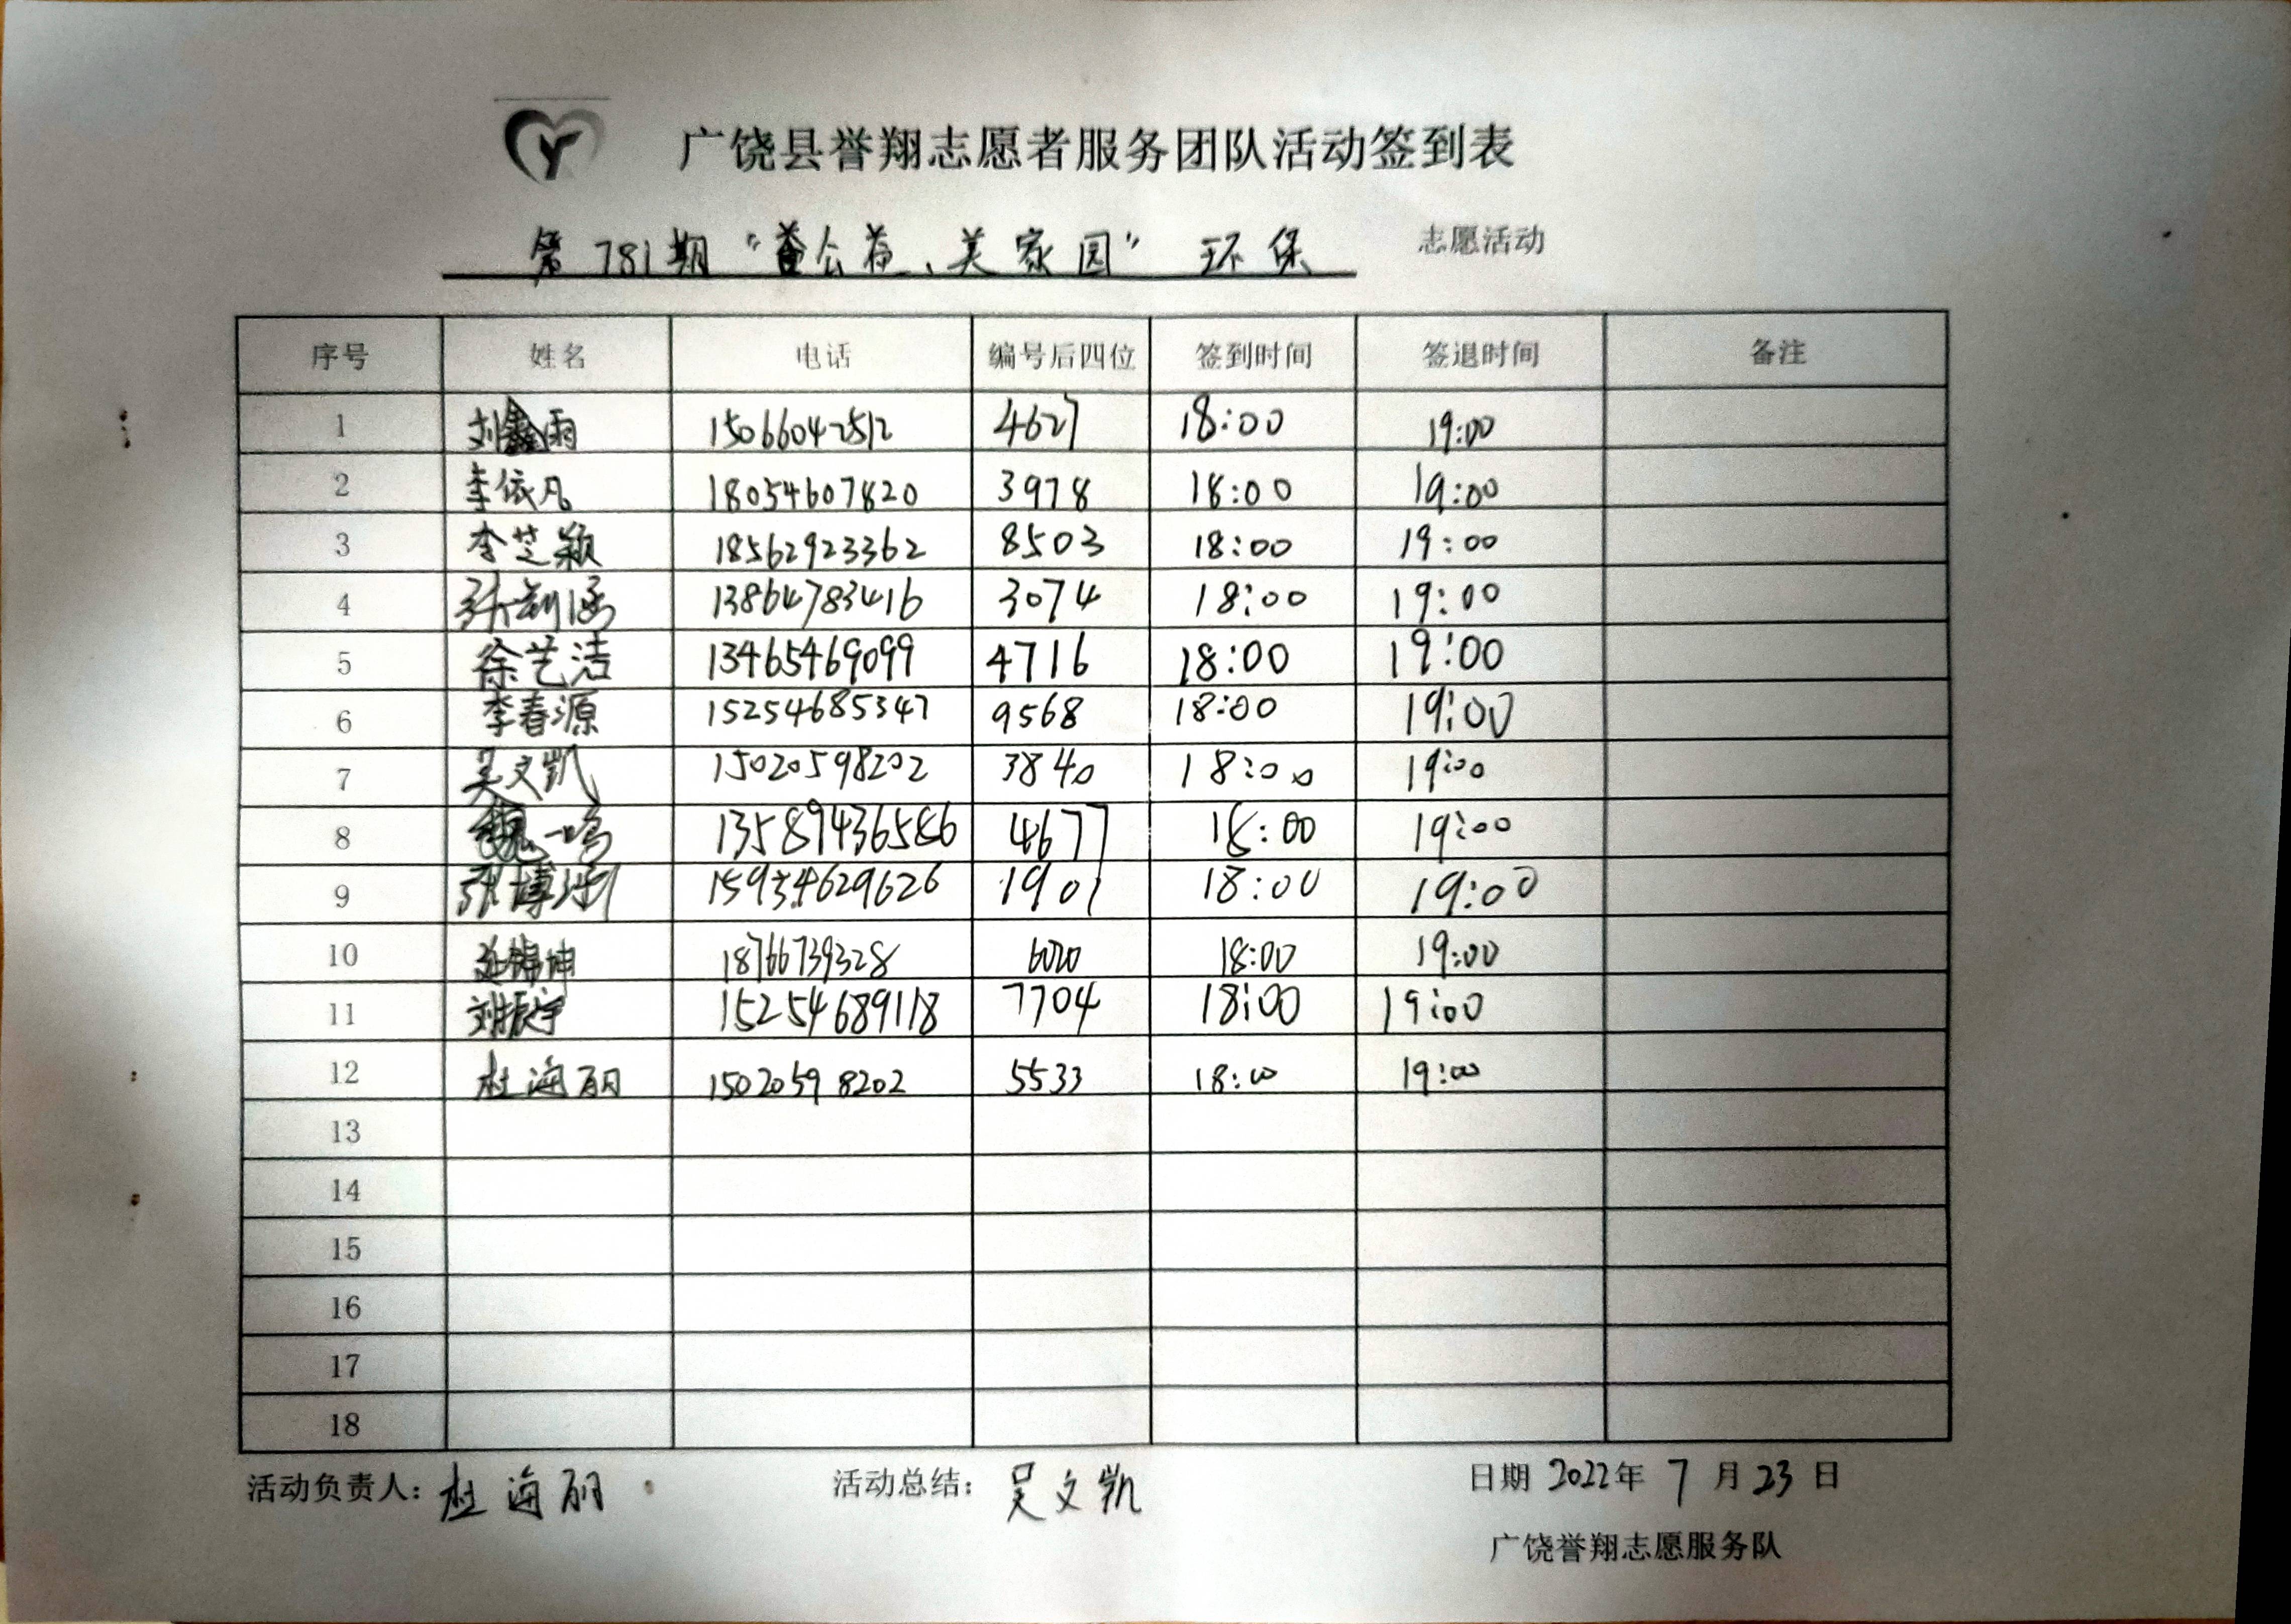 广饶县誉翔志愿者服务团队活动签到表
第781期“荟公益、美家园”环保 志愿活动
序号 姓名 电话 编号后四位 签到时间 签退时间 备注
1 刘鑫雨 15066042512 4627 18:00 19:00
2 李依凡 18054607820 3978 18:00 19:00
3 李芝颖 18562923362 8503 18:00 19:00
4 13864783416 3074 18:00 19:00
5 徐艺洁 13465469099 4716 18:00 19:00
6 李春源 15254685347 9568 18:00 19:00
7 吴文凯 15020598202 3840 18:00 19:00
8 魏一鸣 13589436586 4677 18:00 19:00
9 张博 15934629626 1901 18:00 19:00
10 锦坤 18766739328 6020 18:00 19:00
11 刘振宇 15254689118 7704 18:00 19:00
12 杜海丽 15020598202 5533 18:00 19:00
13
14
15
16
17
18
活动负责人：杜海丽 活动总结：吴文凯 日期 2022年 7 月 23 日
广饶誉翔志愿服务队